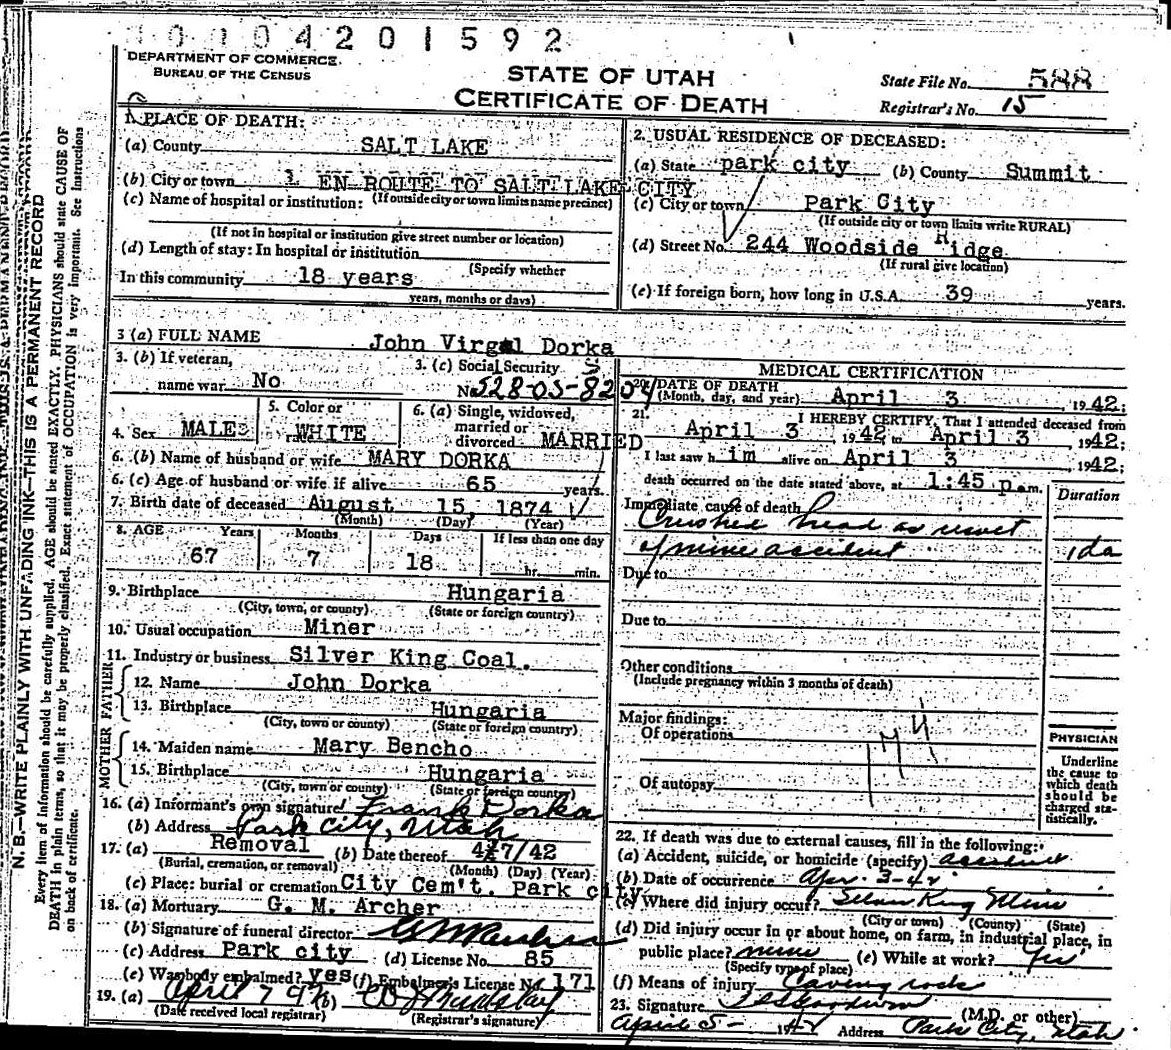 1 0 1 0 4 2 0 1 5 9 2
DEPARTMENT OF COMMERCE
BUREAU OF THE CENSUS
STATE OF UTAH
CERTIFICATE OF DEATH
State File No. 588
Registrar's No. 15
N. B.—WRITE PLAINLY WITH UNFADING INK—THIS IS A PERMANENT RECORD
Every item of information should be carefully supplied. AGE should be stated EXACTLY. PHYSICIANS should state CAUSE OF
DEATH in plain terms, so that it may be properly classified. Exact statement of OCCUPATION is very important. See instructions
on back of certificate.
1. PLACE OF DEATH:
(a) County SALT LAKE
(b) City or town 1 EN ROUTE TO SALT LAKE CITY
(If outside city or town limits name precinct)
(c) Name of hospital or institution:
(If not in hospital or institution give street number or location)
(d) Length of stay: In hospital or institution
(Specify whether
In this community 18 years
years, months or days)
2. USUAL RESIDENCE OF DECEASED:
(a) State park city (b) County Summit
(c) City or town Park City
(If outside city or town limits write RURAL)
(d) Street No. 244 Woodside Ridge
(If rural give location)
(e) If foreign born, how long in U.S.A. 39 years.
3 (a) FULL NAME John Virgel Dorka
3. (b) If veteran,
name war No
3. (c) Social Security
No. 528-05-8204
4. Sex MALE
5. Color or
race WHITE
6. (a) Single, widowed,
married or
divorced MARRIED
6. (b) Name of husband or wife MARY DORKA
6. (c) Age of husband or wife if alive 65 years.
7. Birth date of deceased August 15, 1874
(Month) (Day) (Year)
8. AGE Years Months Days If less than one day
67 7 18 hr. min.
9. Birthplace Hungaria
(City, town, or county) (State or foreign country)
10. Usual occupation Miner
11. Industry or business Silver King Coal.
FATHER
12. Name John Dorka
13. Birthplace Hungaria
(City, town or county) (State or foreign country)
MOTHER
14. Maiden name Mary Bencho
15. Birthplace Hungaria
(City, town or county) (State or foreign country)
16. (a) Informant's own signature Frank Dorka
(b) Address Park City, Utah
17. (a) Removal (b) Date thereof 4/7/42
(Burial, cremation, or removal) (Month) (Day) (Year)
(c) Place: burial or cremation City Cem't. Park city
18. (a) Mortuary G. M. Archer
(b) Signature of funeral director
(c) Address Park city (d) License No. 85
(e) Was body embalmed? yes (f) Embalmer's License No. 171
19. (a) April 7 42 (b)
(Date received local registrar) (Registrar's signature)
MEDICAL CERTIFICATION
20. DATE OF DEATH
(Month, day, and year) April 3, 1942;
21. I HEREBY CERTIFY, That I attended deceased from
April 3 1942 to April 3 1942;
I last saw h im alive on April 3 1942;
death occurred on the date stated above, at 1:45 p.m.
Duration
Immediate cause of death
Crushed head as result
of mine accident 1 da
Due to
Due to
Other conditions
(Include pregnancy within 3 months of death)
Major findings:
Of operations
Of autopsy
PHYSICIAN
Underline
the cause to
which death
should be
charged sta-
tistically.
22. If death was due to external causes, fill in the following:
(a) Accident, suicide, or homicide (specify) accident
(b) Date of occurrence Apr. 3-42
(c) Where did injury occur? Silver King Mine
(City or town) (County) (State)
(d) Did injury occur in or about home, on farm, in industrial place, in
public place? mine (e) While at work? Yes
(Specify type of place)
(f) Means of injury Caving rocks
23. Signature
(M.D. or other)
April 5- 19 Address Park City, Utah